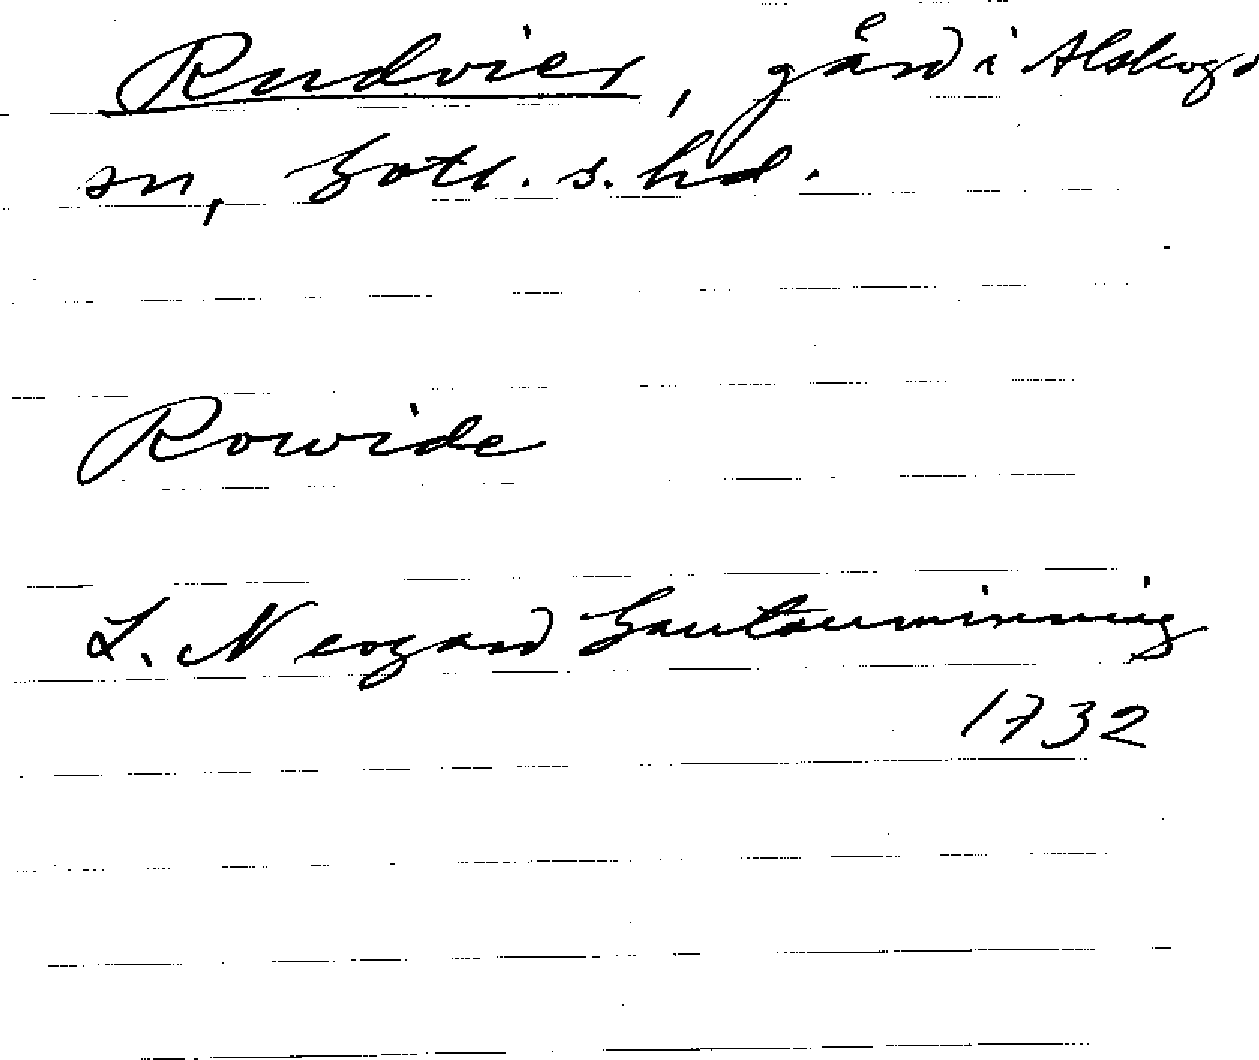 Rudvier, gård i Alskogs
sn, Gotl. s. hd.
Rowide
L. Neogard Gautauminning
1732